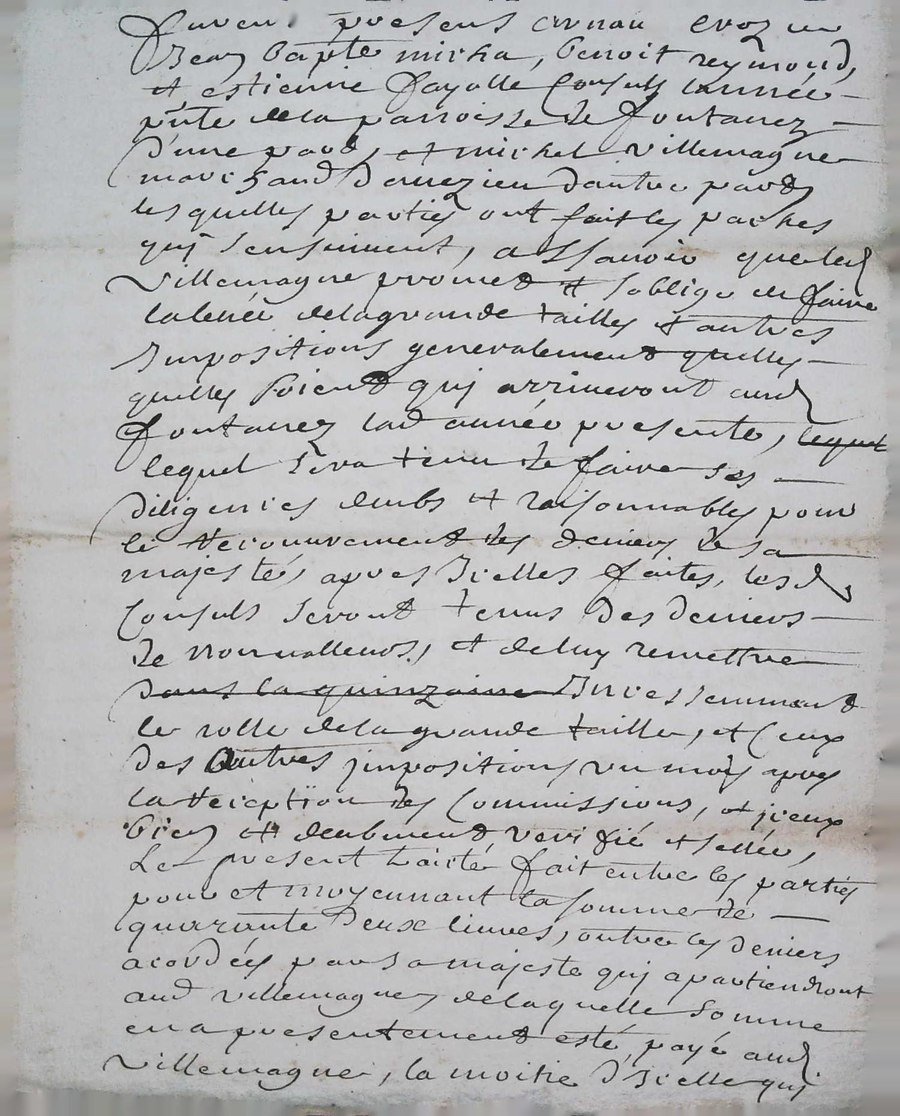 furent presens arnau crozier
Jean bapte micha, benoit reymond,
et estienne fayolle Consuls lannée
pnte de la parroisse de fontanez
d'une pard, et michel villemagne
marchand dauezieu dautre pard
les quelles parties ont fait les paches
quj sensuiuent, a ssauoir que led
villemagne promet et soblige de faire
la leuée de la grande tailles et autres
Jmpositions generalement quelles
quelles soient quj arriueront aud
fontanez lad année presente, lequel
lequel sera tenu de faire ses
diligences deubs et raisonnables pour
le recouurement des deniers de sa
majesté, apres Jcelles faites, lesd
Consuls seront tenus des deniers
de nonualleurs, et de luy remettre
dans la quinzaine Jncessemment
le rolle de la grande taille, et Ceux
des autres jmpositions vn mois apres
la reception des Commissions, et jceux
bien et deubment veriffié et sellée,
Le present traicté fait entre les parties
pour et moyennant la somme de
quarante deux liures, outre les deniers
acordées par sa majeste quj apartiendront
aud villemagne, de laquelle somme
en a presentement esté payé aud
villemagne, la moitie d'Jcelle quj